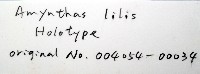 Amynthas lilis
Holotype
original No. 004054-00034